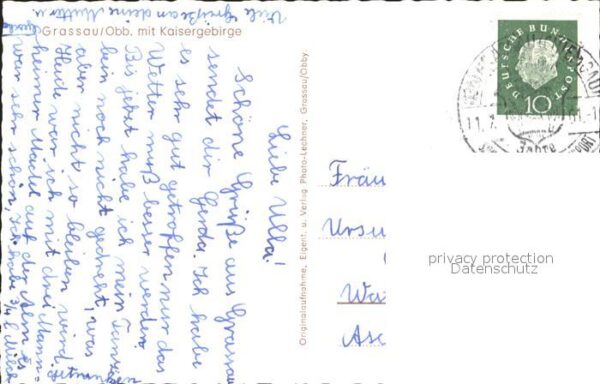 Viele Grüße an deine Mutter u.
Grassau/Obb. mit Kaisergebirge
Liebe Ulla!
Schöne Grüße aus Grassau
sendet dir Gerda. Ich habe
es sehr gut getroffen nur das
Wetter muß besser werden.
Bis jetzt habe ich mein Fuß
bein noch nicht gedreht, was
aber nicht so bleiben wird.
Heute war ich mit drei Mann
heimer Mädel auf der Alm. Es
war sehr schön. Ich hab 3/4 l Milch
Originalaufnahme, Eigent. u. Verlag Photo-Lechner, Grassau/Obby
DEUTSCHE BUNDESPOST
10
Fräu
Ursu
Wa
Asc
privacy protection
Datenschutz